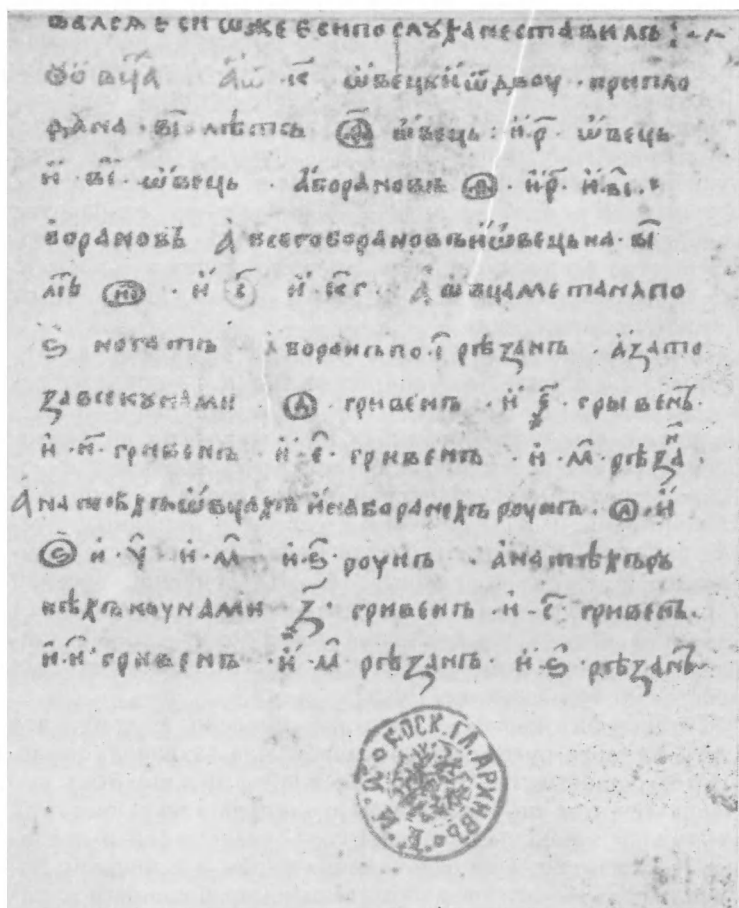 валсѧ еси ѡже еси послуха не ставилъ :~
а҆ѿ · к҃ ѡ҆вецъ и҆ ѿ двоу · припло
дана · в҃і лѣтъ ѡ҆вець : и҆ · р҃ · ѡ҆вець
и҆ · в҃і · ѡ҆вець · а҆ борановъ · и҆ р҃ · и҆ · в҃і ·
борановъ а҆ всего борановъ и҆ ѡ҆вець на · в҃і
и҆ с҃ · и҆ к҃г · а҆ ѡ҆вца метана по
ѕ҃ ногатъ · а҆ боранъ по · і҃ рѣзанъ · а҆ за то
за все кунами · гривенъ · и҆ · гривенъ ·
и҆ · н҃ · гривенъ · и҆ · е҃ · гривенъ · и҆ · м҃ · рѣзанъ ·
а҆ на тѣхъ ѡ҆вцахъ и҆ на боранехъ роунъ · и҆
и҆ · у҃ · и҆ · м҃ · и҆ · ѕ҃ · роунъ · а҆ на тѣхъ ру
нѣхъ коунами · ҂з҃ · гривенъ · и҆ · с҃ · гривенъ ·
и҆ · и҃ · гривенъ · и҆ · м҃ · рѣзанъ · и҆ · ѕ҃ · рѣзанъ
МОСК. ГЛ. АРХИВЪ